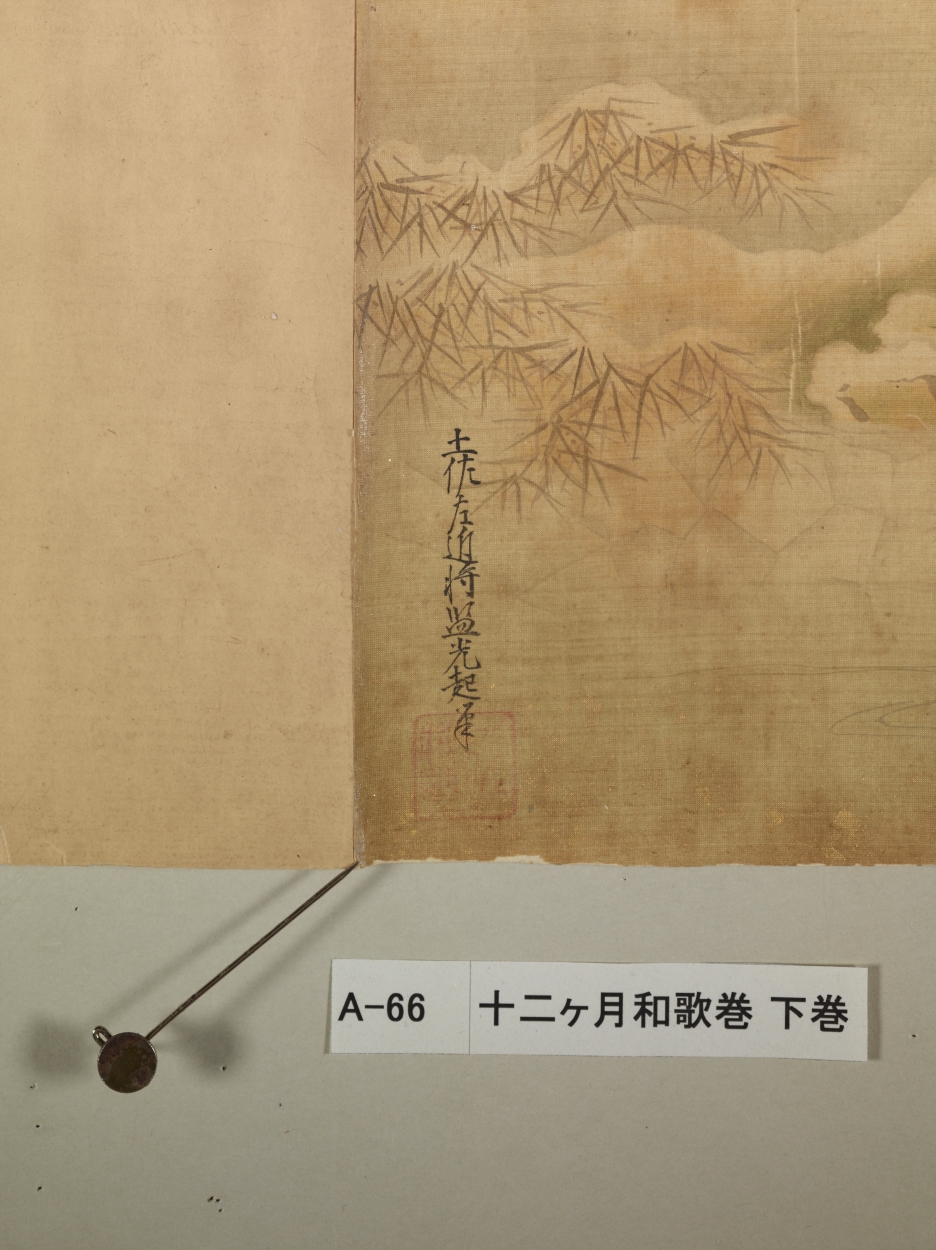 土佐左近将監光起筆
A-66 十二ヶ月和歌巻 下巻